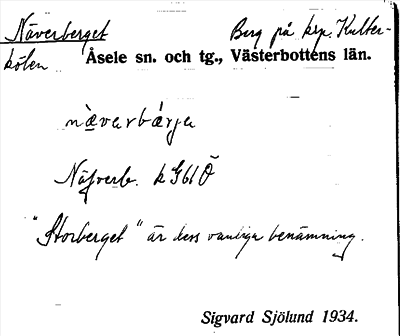 Näverberget Berg på krp. Kulter-
kölen Åsele sn. och tg., Västerbottens län.
nä̀varbárja
Näfverb. k G61 Ö
"Storberget" är dess vanliga benämning.
Sigvard Sjölund 1934.